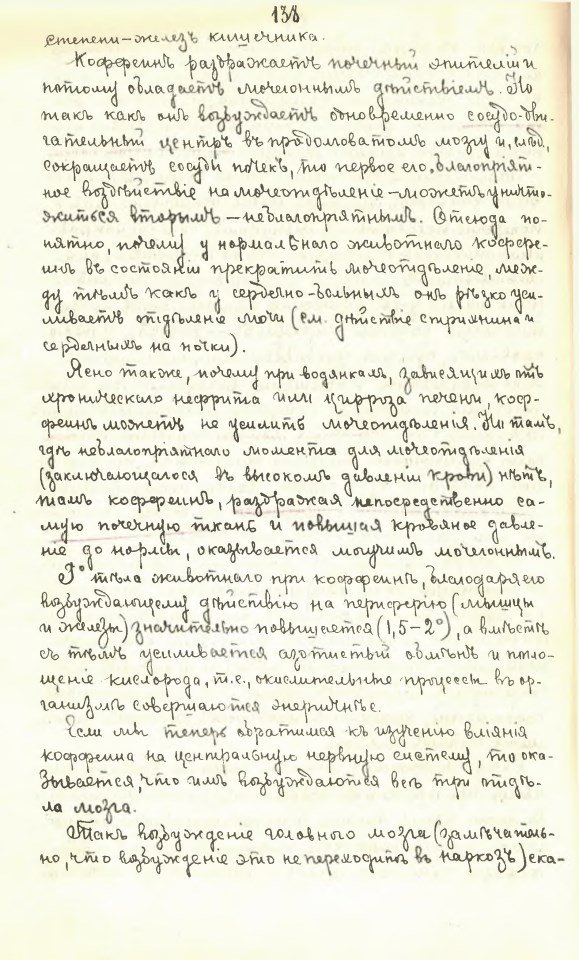 138
степени – железъ кишечника.
Коффеинъ раздражаетъ почечный эпителiй и
потому обладаетъ мочегоннымъ дѣйствiемъ. Но
такъ какъ онъ возбуждаетъ одновременно сосудо-дви-
гательный центръ въ продолговатомъ мозгу и, слѣд,
сокращаетъ сосуды почекъ, то первое его, благопрiят-
ное воздѣйствiе на мочеотдѣленiе – можетъ уничто-
житься вторымъ – неблагопрiятнымъ. Отсюда по-
нятно, почему у нормальнаго животнаго коффе-
инъ въ состоянiи прекратить мочеотдѣленiе, меж-
ду тѣмъ какъ у сердечно-больныхъ онъ рѣзко уси-
ливаетъ отдѣленiе мочи (см. дѣйствiе стрихнина и
сердечныхъ на почки).
Ясно также, почему при водянкахъ, зависящихъ отъ
хроническаго нефрита или цирроза печени, коф-
феинъ можетъ не усилить мочеотдѣленiя. Но тамъ,
гдѣ неблагопрiятнаго момента для мочеотдѣленiя
(заключающагося въ высокомъ давленiи крови) нѣтъ,
тамъ коффеинъ, раздражая непосредственно са-
мую почечную ткань и повышая кровяное давле-
нiе до нормы, оказывается могучимъ мочегоннымъ.
Т° тѣла животнаго при коффеинѣ, благодаря его
возбуждающему дѣйствiю на периферiю (мышцы
и железы) значительно повышается (1,5–2°), а вмѣстѣ
съ тѣмъ усиливается азотистый обмѣнъ и погло-
щенiе кислорода, т.е., окислительные процессы въ ор-
ганизмѣ совершаются энергичнѣе.
Если мы теперь обратимся къ изученiю влiянiя
коффеина на центральную нервную систему, то ока-
зывается, что имъ возбуждаются всѣ три отдѣ-
ла мозга.
Такъ возбужденiе головного мозга (замѣчатель-
но, что возбужденiе это не переходитъ въ наркозъ) ска-